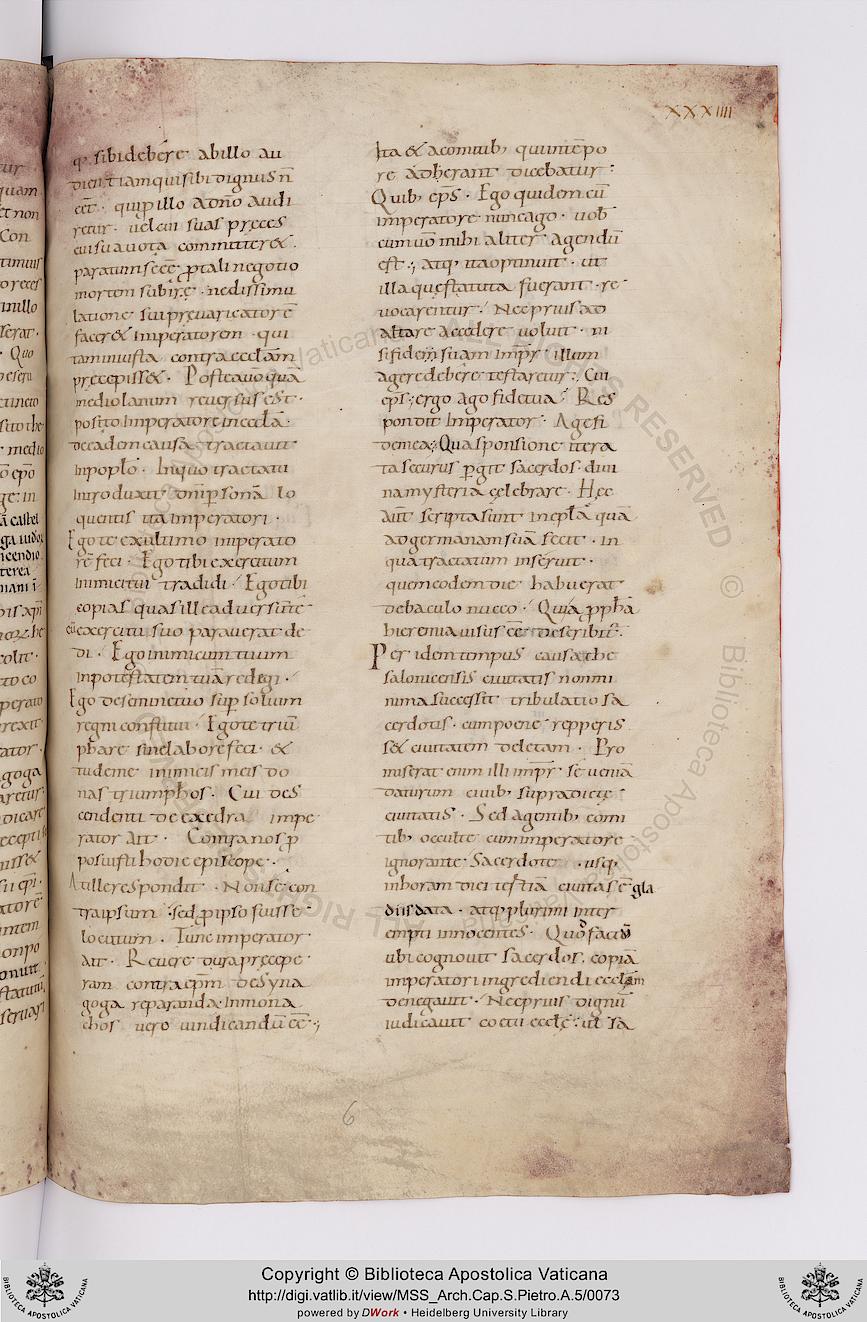 XXXIIII
q; sibi debere ab illo au
dieri iam qui sibi dignus n̄
eēt · qui p illo a dn̄o audi
retur · uel cui suas preces
cui sua uota committer& ·
paratum se eē p tali negotio
mortem subire · ne dissimu
latione sui preuaricatorē
facer& imperatorem · qui
tam iniusta contra eccl̄am
precepiss& · Postea uō quā
mediolanum reuersus est ·
posito Imperatore in eccl̄a ·
de eadem causa tractauit
In poplō · In quo tractatu
Introduxit dn̄i p sonā lo
quentis ita imperatori ·
Ego te ex ultimo imperato
rē feci · Ego tibi exercitum
Inimici tui tradidi / Ego tibi
copias quas ille aduersum te
eū exercitu suo parauerat de
di · Ego inimicum tuum
In potestatem tuā redegi ·
Ego de semine tuo sup solium
regni constitui · Ego te triū
phare sine labore feci · &
tu de me inimicis meis do
nas triumphos · Cui des
cendenti de exedra impe
rator Ait · Contra nos p
posuisti hodie episcope ·
At ille respondit · Non se con
tra ipsum · sed p ipso fuisse
locutum · Tunc imperator
Ait · Reuere dura precepe
ram contra epm̄ de syna
goga reparanda · In mona
chos uero uindicandū eē ·;
Ita & a comitib; qui in tēpo
re Adherant dicebatur :
Quib; ep̄s · Ego quidem cū
imperatore nunc ago · uob
cum uō mihi aliter agendū
est ·; atq; ita optinuit · ut
illa que statuta fuerant · re
uocarentur / Nec prius ad
altare accedere uoluit · ni
si fidem suam Imp̄r illum
agere debere testaretur ·; Cui
ep̄s ·; ergo ago fide tua / Res
pondit Imperator · Age fi
de mea ·; Qua sponsione itera
ta securus p git sacerdos diui
na mysteria celebrare · Hec
aūt scripta sunt in eplā quā
ad germanam suā fecit · in
qua tractatum inseruit ·
quem eodem die habuerat
de baculo nuceo · Quia p phā
hieremia uisus eē describit̄ ·
Per idem tempus causa the
salonicensis ciuitatis non mi
nima successit tribulatio sa
cerdotis · cum poene repperis
s& ciuitatem deletam · Pro
miserat enim illi imp̄r se ueniā
daturum ciuib; supradicte
ciuitatis · Sed agentib; comi
tib; occulte cum imperatore
ignorante Sacerdote · usq;
in horam diei tertiā ciuitas ē gla
diis data · atq; plurimi inter
empti innocentes · Quod factū
ubi cognouit sacerdos · copiā
imperatori ingrediendi eccl̄am
denegauit · Nec prius dignū
iudicauit coetu eccl̄e : ut sa
6
Copyright © Biblioteca Apostolica Vaticana
http://digi.vatlib.it/view/MSS_Arch.Cap.S.Pietro.A.5/0073
powered by DWork • Heidelberg University Library